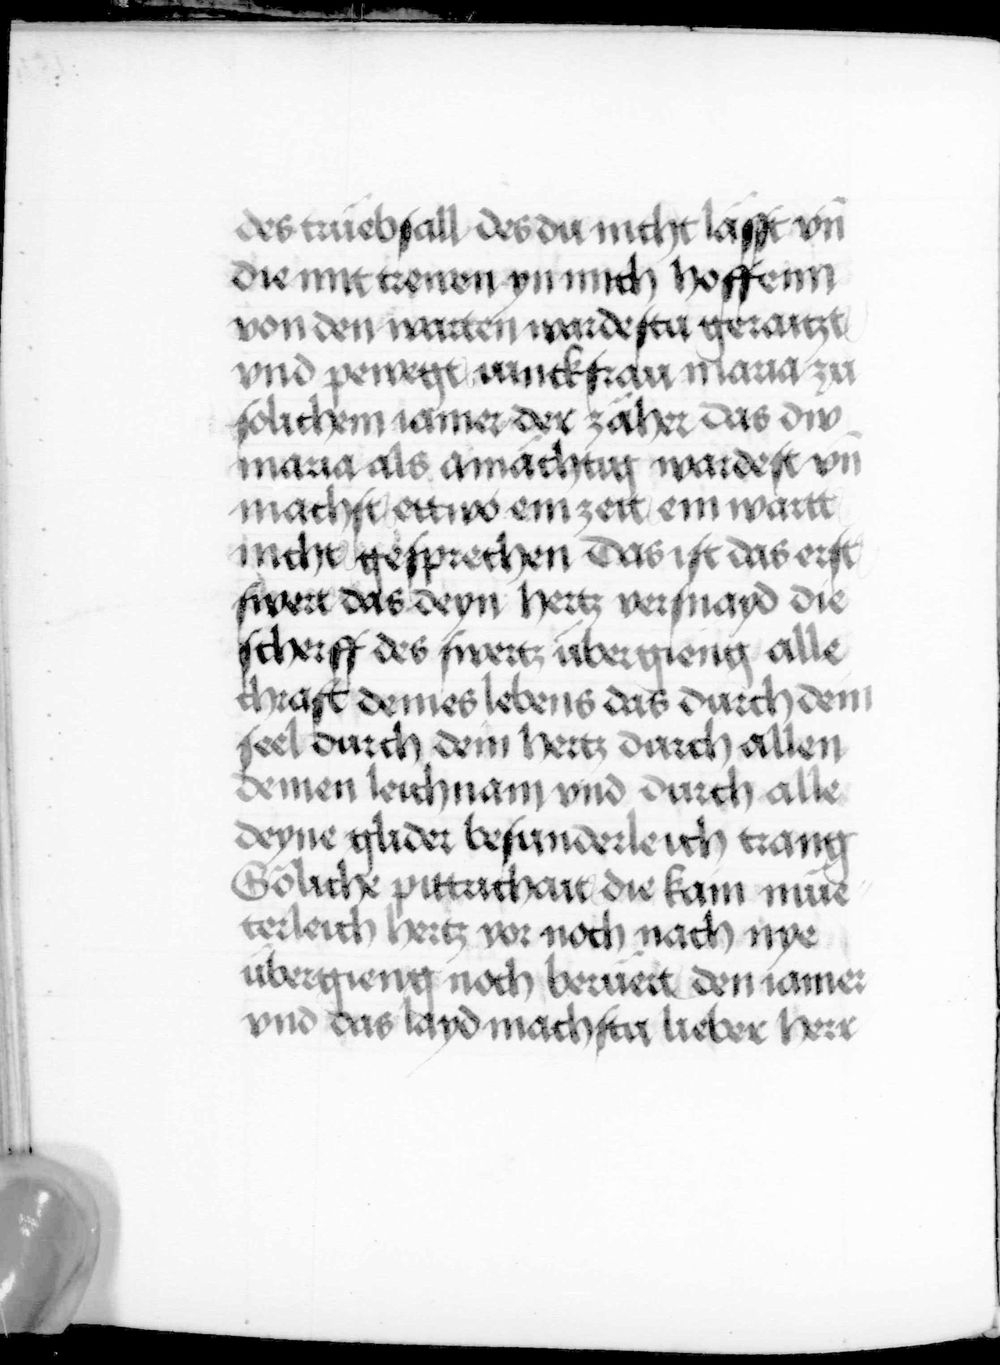 des trüebsall des du nicht läsſt vn̄
die mit trewen yn mich hoffenn
von den warten wardestu geraitzt
vnd pewegt iunckfrau maria zu
solichem iamer der zäher das diw
maria als amächtig wardest vn̄
machst ettwo ein zeit ein wartt
nicht gesprechen Das ist das erst
swert das deyn hertz versnayd die
scherff des swertz übergieng alle
chraft deines lebens das durch dein
seel durch dein hertz durch allen
deinen leichnam vnd durch alle
deyne glider besunderleich trang
Söliche pittrichait die kain müe-
terleich hertz vor noch nach nye
übergieng noch berüert den iamer
vnd das layd machstu lieber herr